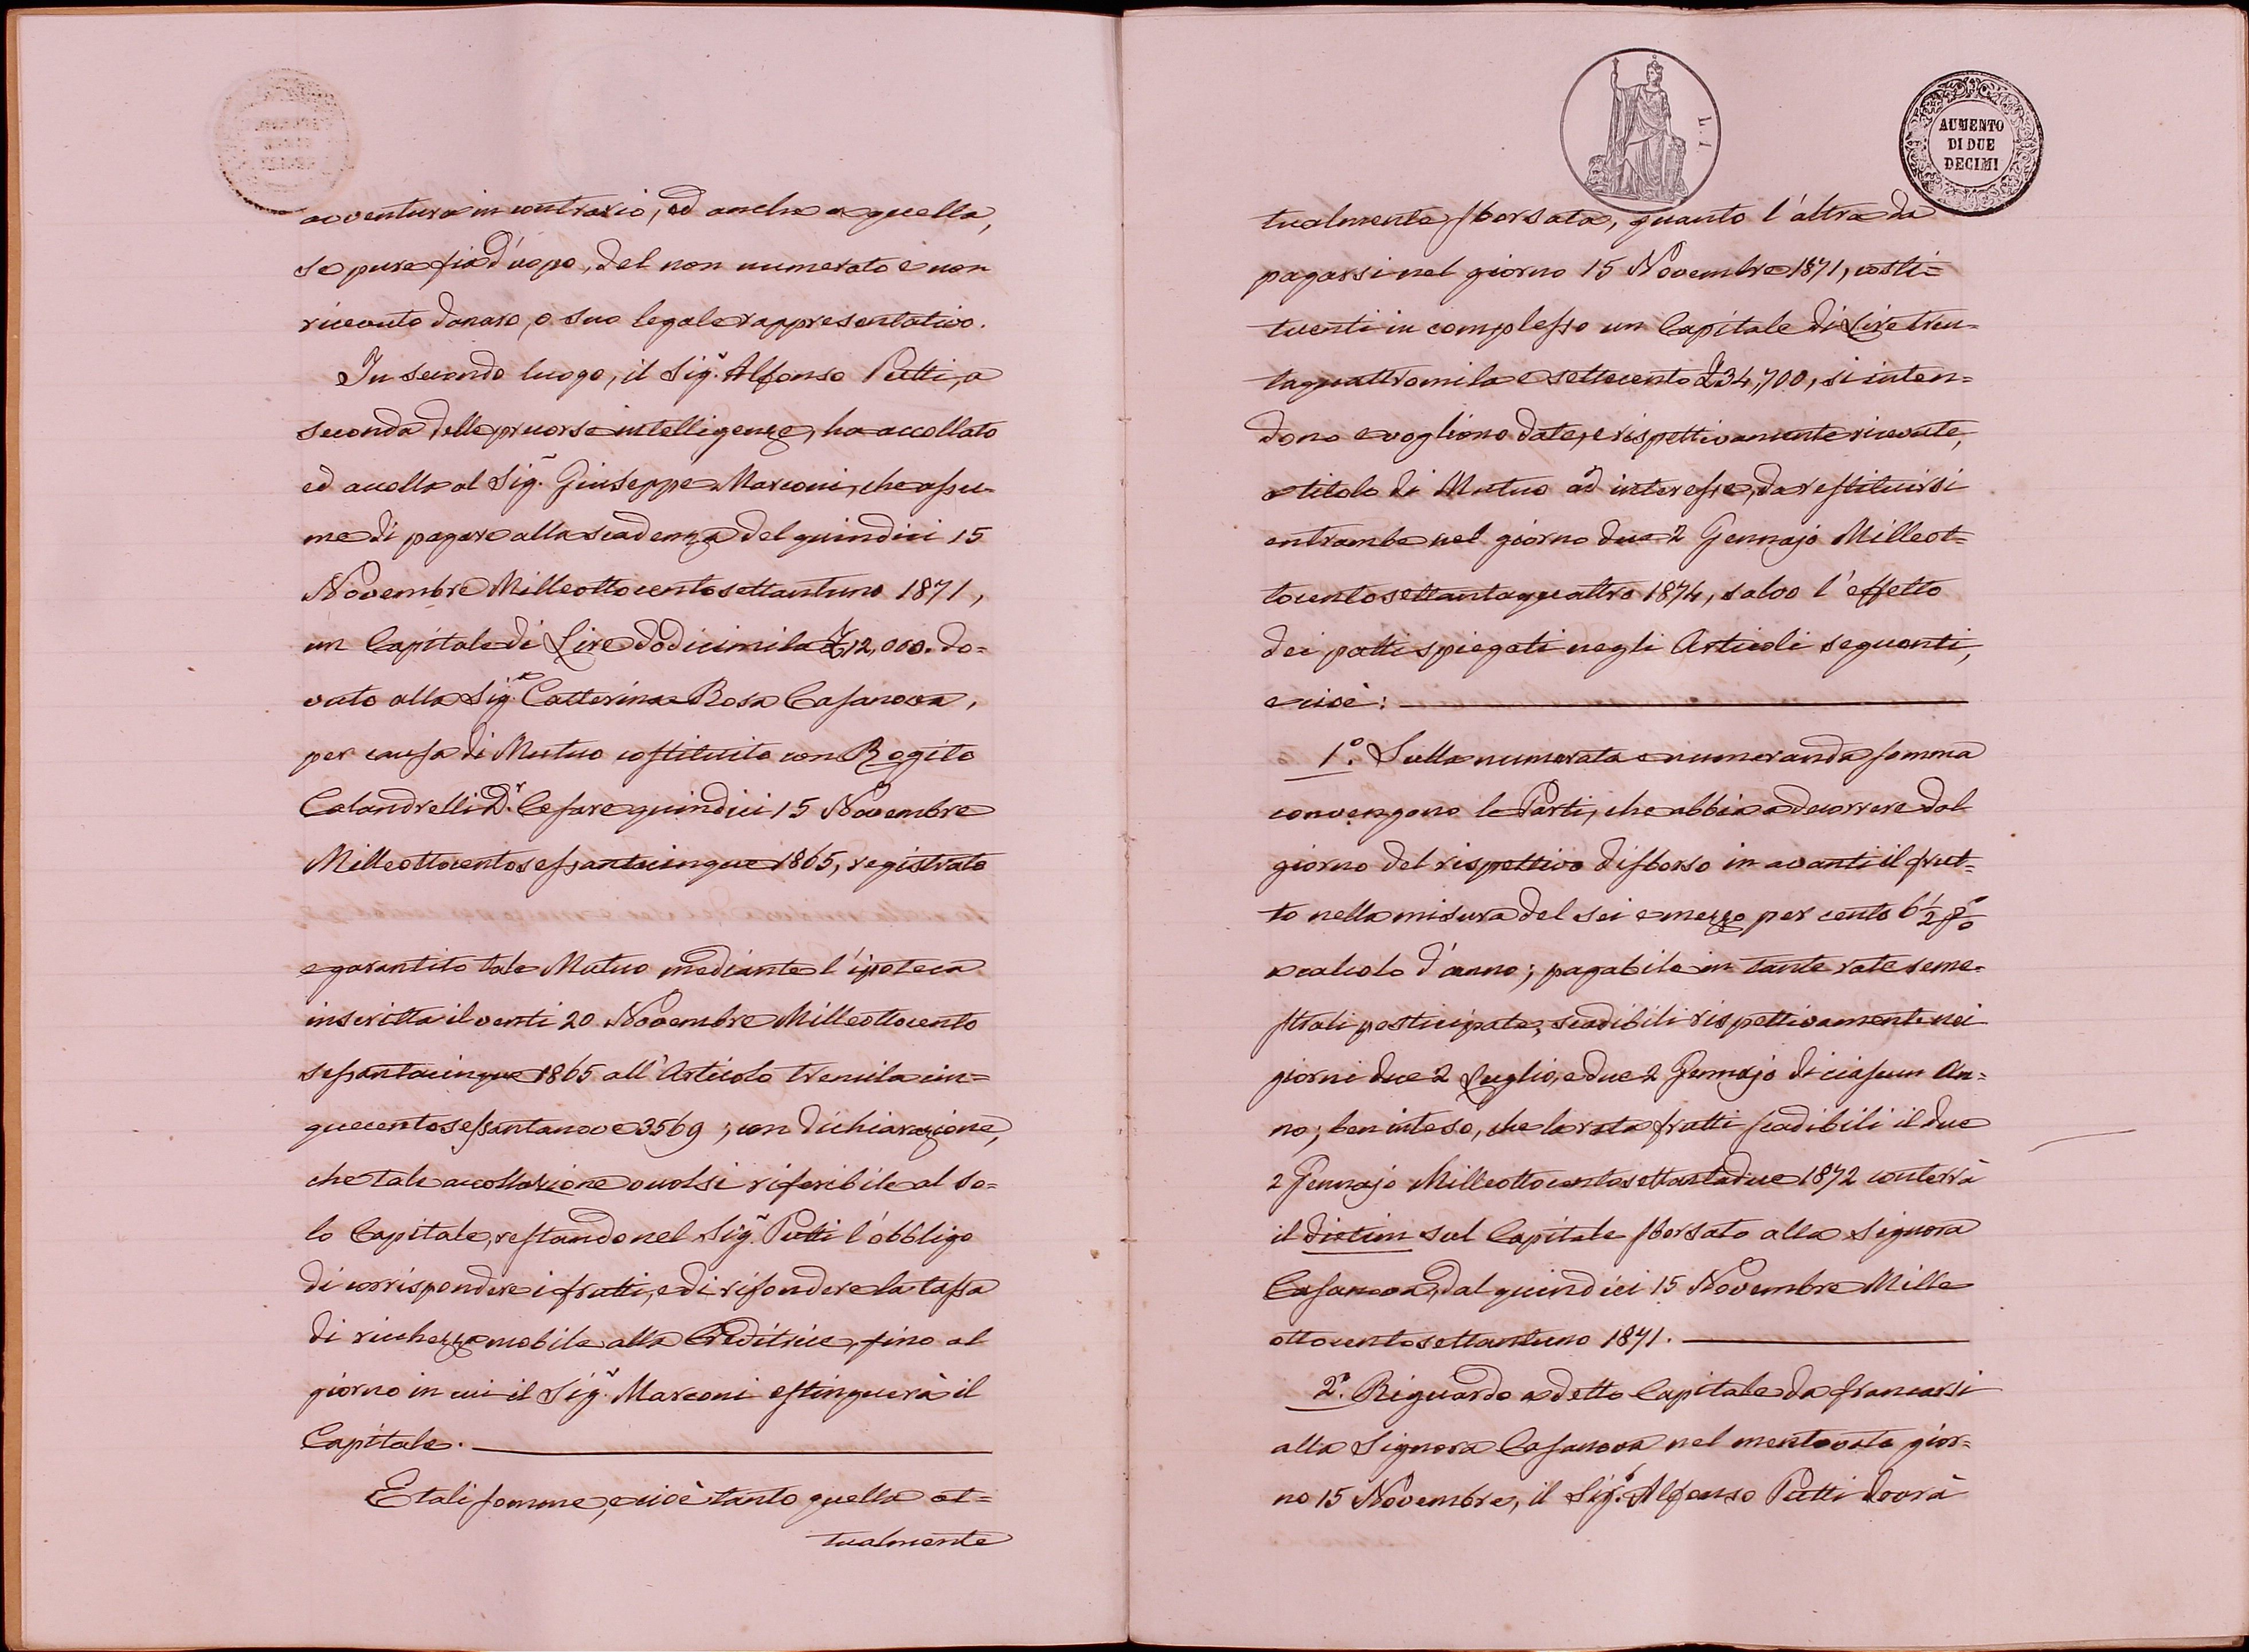 avventura in contrario, ed anche a quella,
se pure fia d'uopo, del non numerato e non
ricevuto danaro, o suo legale rappresentativo.
In secondo luogo, il Sig.r Alfonso Putti, a
seconda delle precorse intelligenze, ha accollato
ed accolla al Sig.r Giuseppe Marconi, che assu-
me di pagare alla scadenza del quindici 15
Novembre Milleottocentosettantuno 1871,
un Capitale di Lire dodicimila £12,000. do=
vuto alla Sig.a Catterina Rosa Casanova,
per causa di Mutuo costituito con Rogito
Calandrelli D.r Cesare quindici 15 Novembre
Milleottocentosessantacinque 1865, registrato
e garantito tale Mutuo mediante l'ipoteca
inscritta il venti 20 Novembre Milleottocento
sessantacinque 1865 all'Articolo tremila cin=
quecentosessantanove 3569; con dichiarazione,
che tale accollazione vuolsi riferibile al so=
lo Capitale, restando nel Sig.r Putti l'obbligo
di corrispondere i frutti, e di rifondere la tassa
di ricchezza mobile alla Creditrice, fino al
giorno in cui il Sig.r Marconi estinguerà il
Capitale.
E tali somme, e cioè tanto quella at=
tualmente
L. 1
AUMENTO
DI DUE
DECIMI
tualmente sborsata, quanto l'altra da
pagarsi nel giorno 15 Novembre 1871, costi=
tuenti in complesso un Capitale di Lire tren-
taquattromila e settecento £34,700, si inten=
dono e vogliono date, e rispettivamente ricevute,
a titolo di Mutuo ad interesse, da restituirsi
entrambe nel giorno due 2 Gennajo Milleot=
tocentosettantaquattro 1874, salvo l'effetto
dei patti spiegati negli Articoli seguenti,
e cioè:
1.o Sulla numerata e numeranda somma
convengono le Parti, che abbia a decorrere dal
giorno del rispettivo disborso in avanti il frut=
to nella misura del sei e mezzo per cento 6 1/2 p%
a calcolo d'anno; pagabile in tante rate seme-
strali posticipate, scadibili rispettivamente nei
giorni due 2 Luglio, e due 2 Gennajo di ciascun An=
no; ben inteso, che la rata frutti scadibili il due
2 Gennajo Milleottocentosettantadue 1872 conterrà
il dietim sul Capitale sborsato alla Signora
Casanova, dal quindici 15 Novembre Mille
ottocentosettantuno 1871.
2.o Riguardo a detto Capitale da francarsi
alla Signora Casanova nel mentovato gior=
no 15 Novembre, il Sig.r Alfonso Putti dovrà